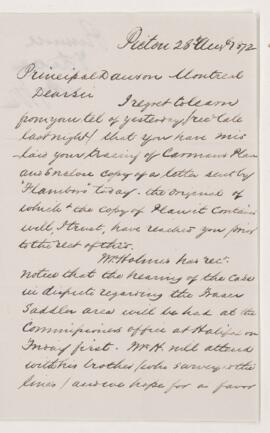 Picton 28th Augt 1872
Principal Dawson Montreal
Dear Sir
I regret to learn
from your tel of yesterday / recd late
last night / that you have mis
laid your tracing of Carmans Plan
and enclose copy of a letter sent by
"Flamboro" today. the original of
which & the copy of Plan it contains
will, I trust, have reached you prior
to the rect of this.
Mr Holmes has recd
notice that the hearing of the case
in dispute regarding the Fraser
Saddler area will be had at the
Commissioners office at Halifax on
Friday first. Mr H. will attend
with his brother / who surveyed the
lines / and we hope for a favor